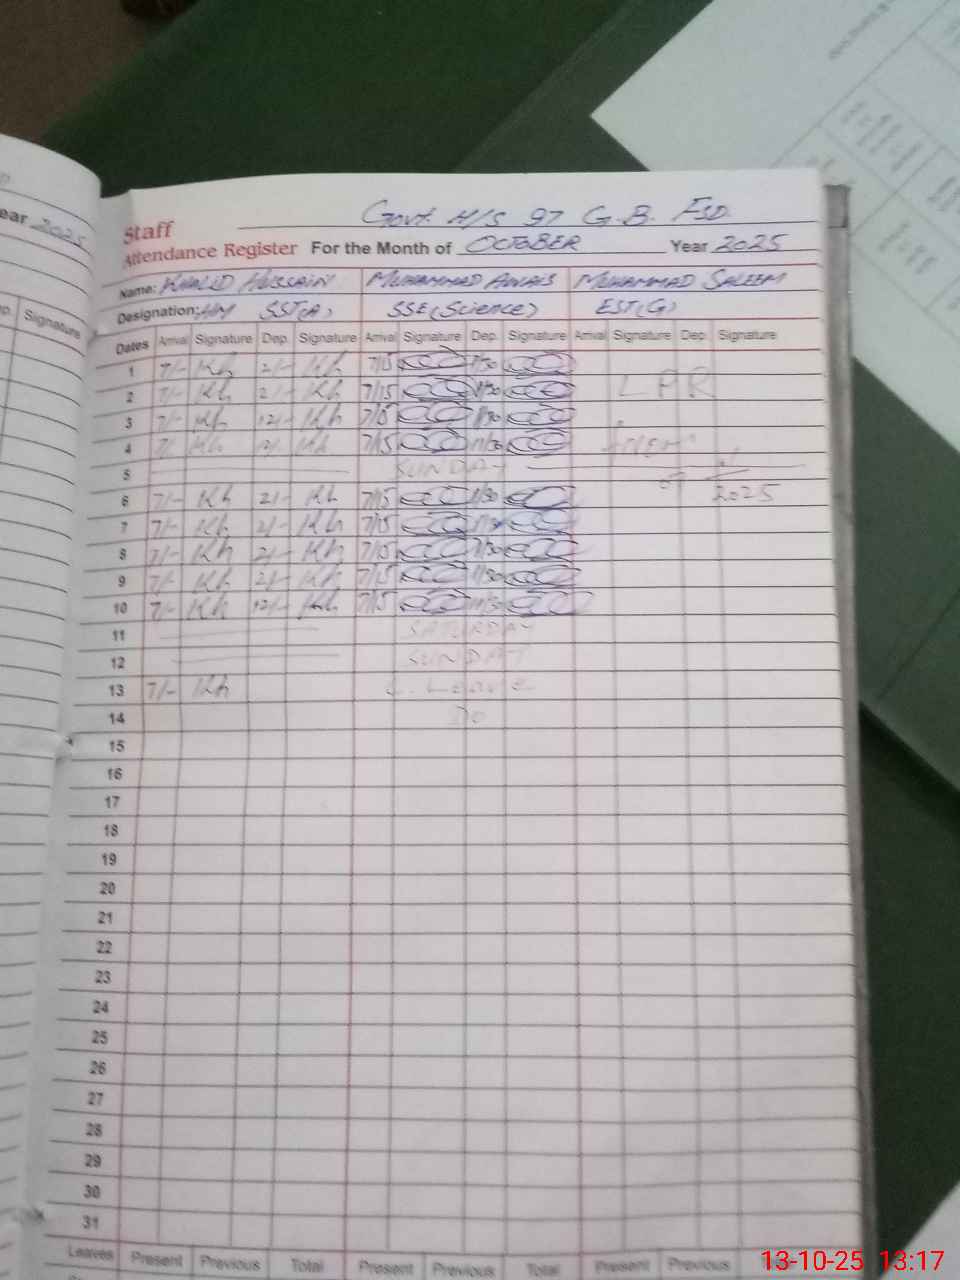 ear 2025
Signature
Govt. H/S 97 G.B. FSD.
Staff
Attendance Register For the Month of OCTOBER Year 2025
Name: KHALID HUSSAIN MUHAMMAD AWAIS MUHAMMAD SALEEM
Designation: HM SST(A) SSE(Science) EST(G)
Dates Arrival Signature Dep. Signature Arrival Signature Dep. Signature Arrival Signature Dep. Signature
1 7/- Kh 2/- Kh 7/15 1/30
2 7/- Kh 2/- Kh 7/15 1/30 LPR
3 7/- Kh 12/- Kh 7/15 11/30
4 7/- Kh 12/- Kh 7/15 11/30
5 SUNDAY
6 7/- Kh 2/- Kh 7/15 1/30 2025
7 7/- Kh 2/- Kh 7/15 1/30
8 7/- Kh 2/- Kh 7/15 1/30
9 7/- Kh 2/- Kh 7/15 1/30
10 7/- Kh 12/- Kh 7/15 11/30
11 SATURDAY
12 SUNDAY
13 7/- Kh C. Leave
14 Do
15
16
17
18
19
20
21
22
23
24
25
26
27
28
29
30
31
Leaves Present Previous Total Present Previous Total Present Previous
13-10-25 13:17